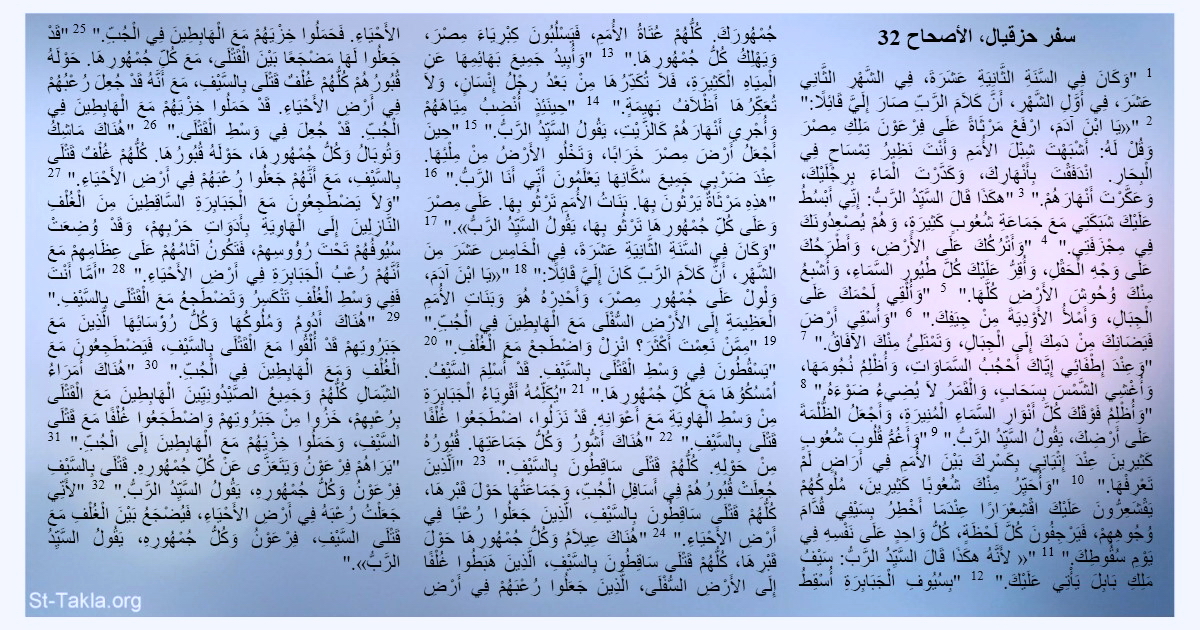 سفر حزقيال، الأصحاح 32
1 "وَكَانَ فِي السَّنَةِ الثَّانِيَةِ عَشْرَةَ، فِي الشَّهْرِ الثَّانِي
عَشَرَ، فِي أَوَّلِ الشَّهْرِ، أَنَّ كَلاَمَ الرَّبِّ صَارَ إِلَيَّ قَائِلًا:"
2 "«يَا ابْنَ آدَمَ، ارْفَعْ مَرْثَاةً عَلَى فِرْعَوْنَ مَلِكِ مِصْرَ
وَقُلْ لَهُ: أَشْبَهْتَ شِبْلَ الأُمَمِ وَأَنْتَ نَظِيرُ تِمْسَاحٍ فِي
الْبِحَارِ. انْدَفَقْتَ بِأَنْهَارِكَ، وَكَدَّرْتَ الْمَاءَ بِرِجْلَيْكَ،
وَعَكَّرْتَ أَنْهَارَهُمْ." 3 "هكَذَا قَالَ السَّيِّدُ الرَّبُّ: إِنِّي أَبْسُطُ
عَلَيْكَ شَبَكَتِي مَعَ جَمَاعَةِ شُعُوبٍ كَثِيرَةٍ، وَهُمْ يُصْعِدُونَكَ
فِي مِجْزَفَتِي." 4 "وَأَتْرُكُكَ عَلَى الأَرْضِ، وَأَطْرَحُكَ
عَلَى وَجْهِ الْحَقْلِ، وَأُقِرُّ عَلَيْكَ كُلَّ طُيُورِ السَّمَاءِ، وَأُشْبعُ
مِنْكَ وُحُوشَ الأَرْضِ كُلَّهَا." 5 "وَأُلْقِي لَحْمَكَ عَلَى
الْجِبَالِ، وَأَمْلأُ الأَوْدِيَةَ مِنْ جِيَفِكَ." 6 "وَأُسْقِي أَرْضَ
فَيَضَانِكَ مِنْ دَمِكَ إِلَى الْجِبَالِ، وَتَمْتَلِئُ مِنْكَ الآفَاقُ." 7
"وَعِنْدَ إِطْفَائِي إِيَّاكَ أَحْجُبُ السَّمَاوَاتِ، وَأُظْلِمُ نُجُومَهَا،
وَأَغْشِي الشَّمْسَ بِسَحَابٍ، وَالْقَمَرُ لاَ يُضِيءُ ضَوْءَهُ." 8
"وَأُظْلِمُ فَوْقَكَ كُلَّ أَنْوَارِ السَّمَاءِ الْمُنِيرَةِ، وَأَجْعَلُ الظُّلْمَةَ
عَلَى أَرْضِكَ، يَقُولُ السَّيِّدُ الرَّبُّ." 9 "وَأَغُمُّ قُلُوبَ شُعُوبٍ
كَثِيرِينَ عِنْدَ إِتْيَانِي بِكَسْرِكَ بَيْنَ الأُمَمِ فِي أَرَاضٍ لَمْ
تَعْرِفْهَا." 10 "وَأُحَيِّرُ مِنْكَ شُعُوبًا كَثِيرِينَ، مُلُوكُهُمْ
يَقْشَعِرُّونَ عَلَيْكَ اقْشِعْرَارًا عِنْدَمَا أَخْطِرُ بِسَيْفِي قُدَّامَ
وُجُوهِهِمْ، فَيَرْجِفُونَ كُلَّ لَحْظَةٍ، كُلُّ وَاحِدٍ عَلَى نَفْسِهِ فِي
يَوْمِ سُقُوطِكَ." 11 "« لأَنَّهُ هكَذَا قَالَ السَّيِّدُ الرَّبُّ: سَيْفُ
مَلِكِ بَابِلَ يَأْتِي عَلَيْكَ." 12 "بِسُيُوفِ الْجَبَابِرَةِ أُسْقِطُ
جُمْهُورَكَ. كُلُّهُمْ عُتَاةُ الأُمَمِ، فَيَسْلُبُونَ كِبْرِيَاءَ مِصْرَ،
وَيَهْلِكُ كُلُّ جُمْهُورِهَا." 13 "وَأُبِيدُ جَمِيعَ بَهَائِمِهَا عَنِ
الْمِيَاهِ الْكَثِيرَةِ، فَلاَ تُكَدِّرُهَا مِنْ بَعْدُ رِجْلُ إِنْسَانٍ، وَلاَ
تُعَكِّرُهَا أَظْلاَفُ بَهِيمَةٍ." 14 "حِينَئِذٍ أُنْضِبُ مِيَاهَهُمْ
وَأُجْرِي أَنْهَارَهُمْ كَالزَّيْتِ، يَقُولُ السَّيِّدُ الرَّبُّ." 15 "حِينَ
أَجْعَلُ أَرْضَ مِصْرَ خَرَابًا، وَتَخْلُو الأَرْضُ مِنْ مِلْئِهَا.
عِنْدَ ضَرْبِي جَمِيعَ سُكَّانِهَا يَعْلَمُونَ أَنِّي أَنَا الرَّبُّ." 16
"هذِهِ مَرْثَاةٌ يَرْثُونَ بِهَا. بَنَاتُ الأُمَمِ تَرْثُو بِهَا. عَلَى مِصْرَ
وَعَلَى كُلِّ جُمْهُورِهَا تَرْثُو بِهَا، يَقُولُ السَّيِّدُ الرَّبُّ»." 17
"وَكَانَ فِي السَّنَةِ الثَّانِيَةِ عَشْرَةَ، فِي الْخَامِسِ عَشَرَ مِنَ
الشَّهْرِ، أَنَّ كَلاَمَ الرَّبِّ كَانَ إِلَيَّ قَائِلًا:" 18 "«يَا ابْنَ آدَمَ،
وَلْوِلْ عَلَى جُمْهُورِ مِصْرَ، وَأَحْدِرْهُ هُوَ وَبَنَاتِ الأُمَمِ
الْعَظِيمَةِ إِلَى الأَرْضِ السُّفْلَى مَعَ الْهَابِطِينَ فِي الْجُبِّ."
19 "مِمَّنْ نَعِمْتَ أَكْثَرَ؟ انْزِلْ وَاضْطَجعْ مَعَ الْغُلْفِ." 20
"يَسْقُطُونَ فِي وَسْطِ الْقَتْلَى بِالسَّيْفِ. قَدْ أُسْلِمَ السَّيْفُ.
امْسُكُوهَا مَعَ كُلِّ جُمْهُورِهَا." 21 "يُكَلِّمُهُ أَقْوِيَاءُ الْجَبَابِرَةِ
مِنْ وَسَطِ الْهَاوِيَةِ مَعَ أَعْوَانِهِ. قَدْ نَزَلُوا، اضْطَجَعُوا غُلْفًا
قَتْلَى بِالسَّيْفِ." 22 "هُنَاكَ أَشُّورُ وَكُلُّ جَمَاعَتِهَا. قُبُورُهُ
مِنْ حَوْلِهِ. كُلُّهُمْ قَتْلَى سَاقِطُونَ بِالسَّيْفِ." 23 "اَلَّذِينَ
جُعِلَتْ قُبُورُهُمْ فِي أَسَافِلِ الْجُبِّ، وَجَمَاعَتُهَا حَوْلَ قَبْرِهَا،
كُلُّهُمْ قَتْلَى سَاقِطُونَ بِالسَّيْفِ، الَّذِينَ جَعَلُوا رُعْبًا فِي
أَرْضِ الأَحْيَاءِ." 24 "هُنَاكَ عِيلاَمُ وَكُلُّ جُمْهُورِهَا حَوْلَ
قَبْرِهَا، كُلُّهُمْ قَتْلَى سَاقِطُونَ بِالسَّيْفِ، الَّذِينَ هَبَطُوا غُلْفًا
إِلَى الأَرْضِ السُّفْلَى، الَّذِينَ جَعَلُوا رُعْبَهُمْ فِي أَرْضِ
الأَحْيَاءِ. فَحَمَلُوا خِزْيَهُمْ مَعَ الْهَابِطِينَ فِي الْجُبِّ." 25 "قَدْ
جَعَلُوا لَهَا مَضْجَعًا بَيْنَ الْقَتْلَى، مَعَ كُلِّ جُمْهُورِهَا. حَوْلَهُ
قُبُورُهُمْ كُلُّهُمْ غُلْفٌ قَتْلَى بِالسَّيْفِ، مَعَ أَنَّهُ قَدْ جُعِلَ رُعْبُهُمْ
فِي أَرْضِ الأَحْيَاءِ. قَدْ حَمَلُوا خِزْيَهُمْ مَعَ الْهَابِطِينَ فِي
الْجُبِّ. قَدْ جُعِلَ فِي وَسْطِ الْقَتْلَى." 26 "هُنَاكَ مَاشِكُ
وَتُوبَالُ وَكُلُّ جُمْهُورِهَا، حَوْلَهُ قُبُورُهَا. كُلُّهُمْ غُلْفٌ قَتْلَى
بِالسَّيْفِ، مَعَ أَنَّهُمْ جَعَلُوا رُعْبَهُمْ فِي أَرْضِ الأَحْيَاءِ." 27
"وَلاَ يَضْطَجِعُونَ مَعَ الْجَبَابِرَةِ السَّاقِطِينَ مِنَ الْغُلْفِ
النَّازِلِينَ إِلَى الْهَاوِيَةِ بِأَدَوَاتِ حَرْبِهِمْ، وَقَدْ وُضِعَتْ
سُيُوفُهُمْ تَحْتَ رُؤُوسِهِمْ، فَتَكُونُ آثَامُهُمْ عَلَى عِظَامِهِمْ مَعَ
أَنَّهُمْ رُعْبُ الْجَبَابِرَةِ فِي أَرْضِ الأَحْيَاءِ." 28 "أَمَّا أَنْتَ
فَفِي وَسْطِ الْغُلْفِ تَنْكَسِرُ وَتَضْطَجِعُ مَعَ الْقَتْلَى بِالسَّيْفِ."
29 "هُنَاكَ أَدُومُ وَمُلُوكُهَا وَكُلُّ رُؤَسَائِهَا الَّذِينَ مَعَ
جَبَرُوتِهِمْ قَدْ أُلْقُوا مَعَ الْقَتْلَى بِالسَّيْفِ، فَيَضْطَجِعُونَ مَعَ
الْغُلْفِ وَمَعَ الْهَابِطِينَ فِي الْجُبِّ." 30 "هُنَاكَ أُمَرَاءُ
الشِّمَالِ كُلُّهُمْ وَجَمِيعُ الصِّيدُونِيِّينَ الْهَابِطِينَ مَعَ الْقَتْلَى
بِرُعْبِهِمْ، خَزُوا مِنْ جَبَرُوتِهِمْ وَاضْطَجَعُوا غُلْفًا مَعَ قَتْلَى
السَّيْفِ، وَحَمَلُوا خِزْيَهُمْ مَعَ الْهَابِطِينَ إِلَى الْجُبِّ." 31
"يَرَاهُمْ فِرْعَوْنُ وَيَتَعَزَّى عَنْ كُلِّ جُمْهُورِهِ. قَتْلَى بِالسَّيْفِ
فِرْعَوْنُ وَكُلُّ جُمْهُورِهِ، يَقُولُ السَّيِّدُ الرَّبُّ." 32 "لأَنِّي
جَعَلْتُ رُعْبَهُ فِي أَرْضِ الأَحْيَاءِ، فَيُضْجَعُ بَيْنَ الْغُلْفِ مَعَ
قَتْلَى السَّيْفِ، فِرْعَوْنُ وَكُلُّ جُمْهُورِهِ، يَقُولُ السَّيِّدُ
الرَّبُّ»."
St-Takla.org